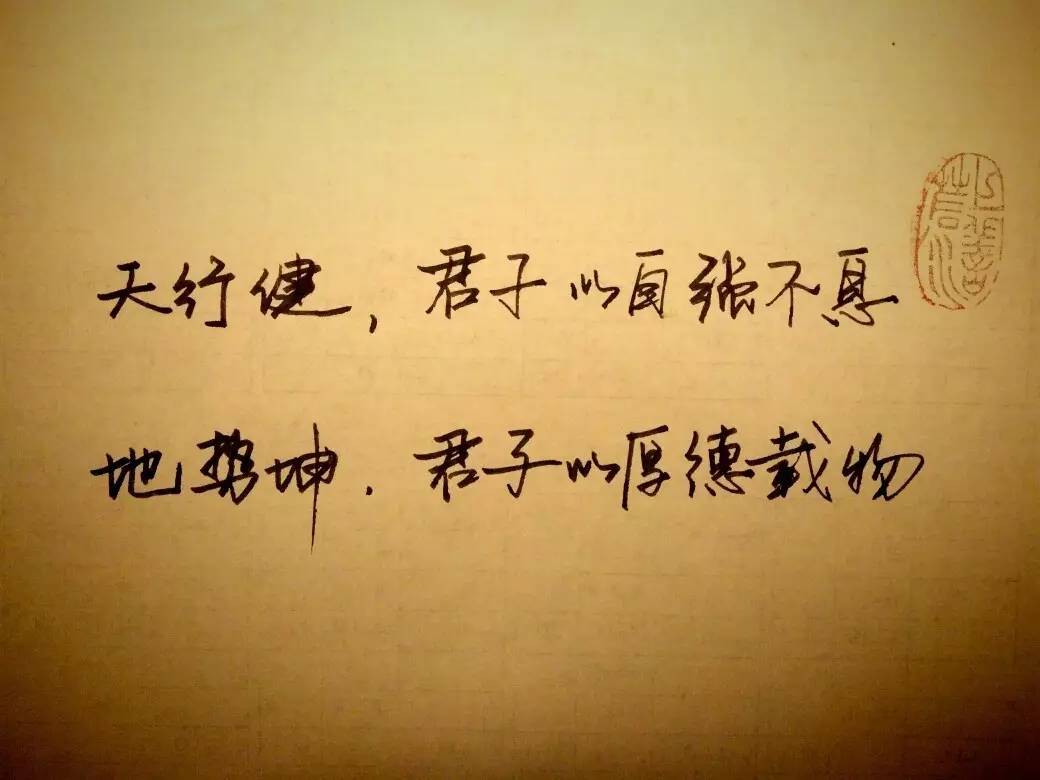 天行健，君子以自强不息
地势坤，君子以厚德载物